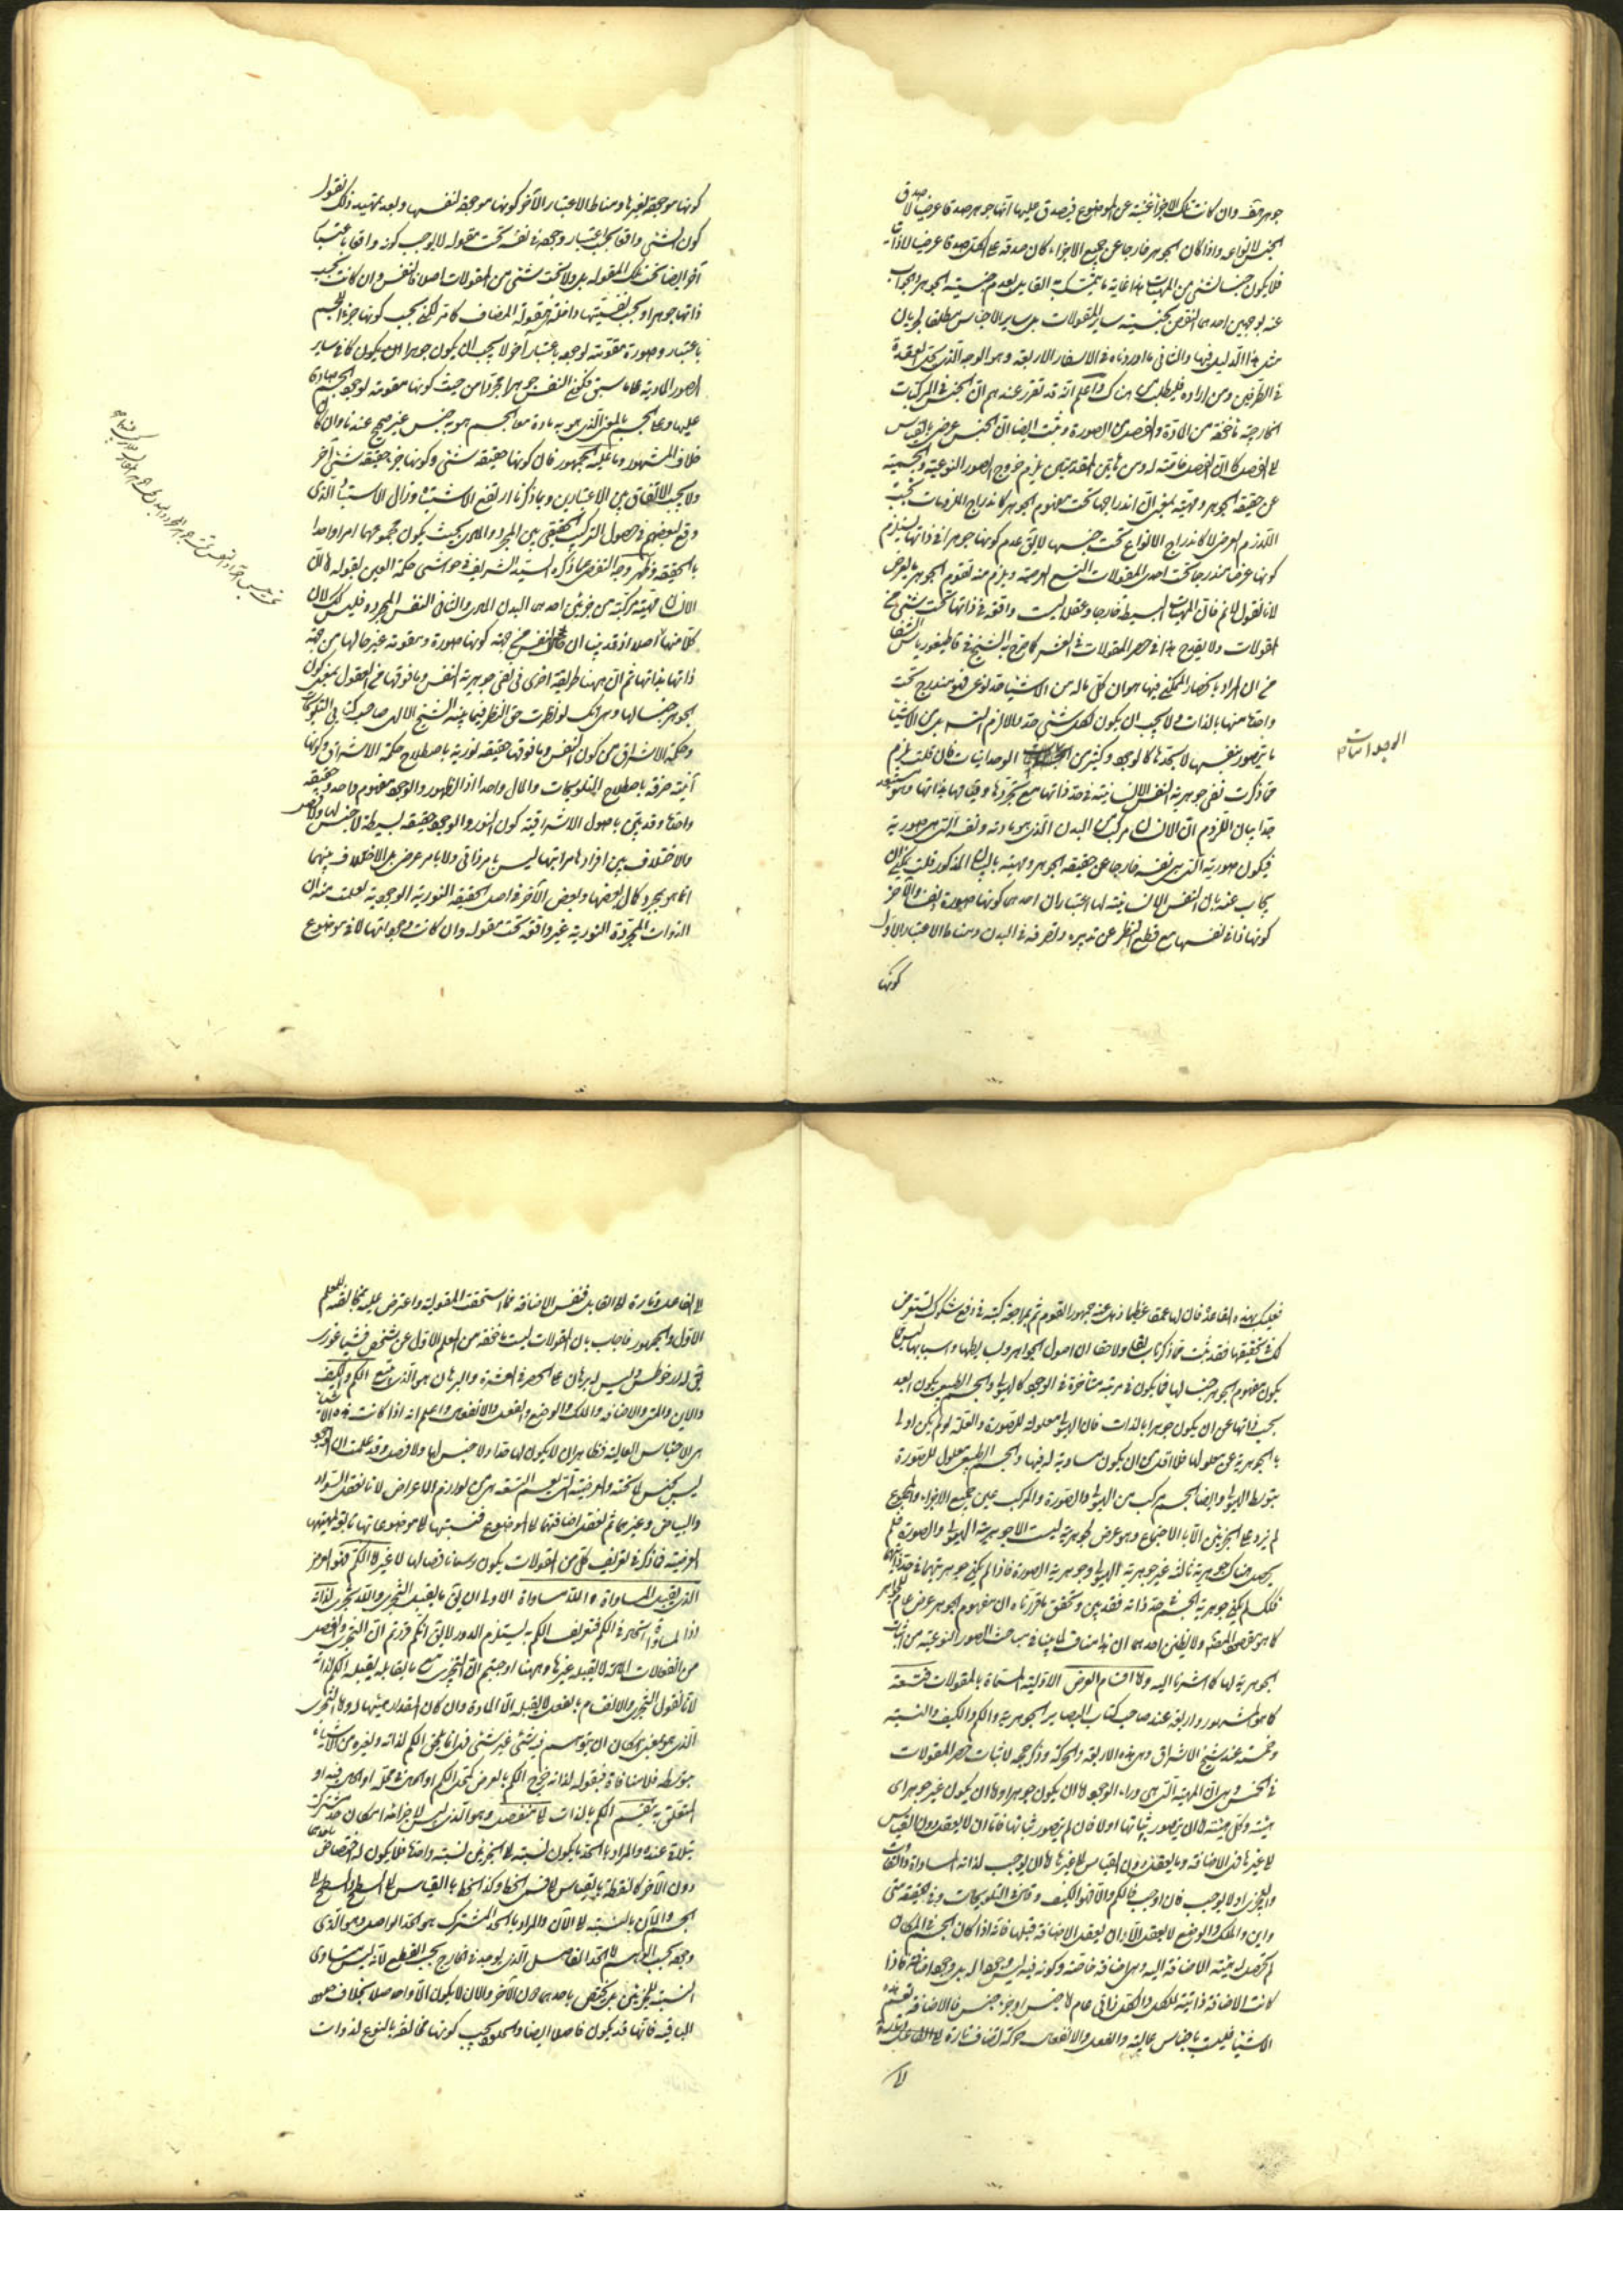 جوهر حقه وان كانت تلك الاجزاء غنية عن الموضوع فيصدق عليها انها جوهر صدقا عرضيا لا صدق
الجنس لانواعه واذا كان الجوهر خارجا عن جميع الاجزاء كان صدقه على الكل صدقا عرضيا لا ذاتيا
فلا يكون جنسا لشئ من المهيات هذا غاية ما يتمسك به القايل بعدم جنسية الجوهر والجواب
عنه بوجهين احدهما النقض بجنسية ساير المقولات بل ساير الاجناس مطلقا لجريان
مثل هذا الدليل فيها والثانى ما اوردناه فى الاسفار الاربعة وهو الوجه الذى يحل العقدة
فى الطرفين ومن اراده فليطلب من هناك واعلم انه قد تقرر عندهم ان الجنس فى المركبات
الخارجية ماخوذ من المادة والفصل من الصورة وثبت ايضا ان الجنس عرض بالقياس
الى الفصل كما ان الفصل خاصة له ومن هاتين المقدمتين يلزم خروج الصور النوعية والجسمية
عن حقيقة الجوهر ومهيته بمعنى ان اندراجها تحت مفهوم الجوهر كاندراج الملزومات تحت
اللازم العرضى لا كاندراج الانواع تحت جنسها لا يق عدم كونها جوهرا فى ذاتها يستلزم
كونها عرضا مندرجا تحت احدى المقولات التسع العرضية ويلزم منه تقوم الجوهر بالعرض
لانا نقول لا نم فان المهيات البسيطة خارجا وعقلا ليست واقعة فى ذاتها تحت شئ من
المقولات ولا يقدح هذا فى حصر المقولات فى العشر كما صرح به الشيخ فى قاطيغورياس الشفا
من ان المراد بانحصار الممكن فيها هو ان كل ما له من الاشياء حد نوعى فهو مندرج تحت
واحد منها بالذات ولا يجب ان يكون لكل شئ حد والا لزم التس بل من الاشيا
ما يتصور بنفسها لا بحدها كالوجود وكثير من الوجدانيات فان قلت يلزم
مما ذكرت نفى جوهرية النفس الانسانية فى حد ذاتها مع تجردها وقيامها بذاتها وهو مستبعد
جدا بيان اللزوم ان الانسان مركب من البدن الذى هو مادته ونفسه التى هى صورته
فيكون صورته التى هى نفسه خارجا عن حقيقة الجوهر ومهيته بالبيان المذكور قلت يمكن ان
يجاب عنه بان النفس الانسانية لها اعتباران احدهما كونها صورة ونفسا والآخر
كونها ذاتا فى نفسها مع قطع النظر عن تدبيره وتصرفه فى البدن ومناط الاعتبار الاول
كونها
الوجدانيات
كونها موجودة لغيرها ومناط الاعتبار الآخر كونها موجودة لنفسها وبعد تمهيد ذلك نقول
كون الشئ واقعا بحسب اعتبار وجوده فى نفسه تحت مقولة لا يوجب كونه واقعا باعتبار
آخر ايضا تحت تلك المقولة بل ولا تحت شئ من المقولات اصلا فالنفس وان كانت بحسب
ذاتها جوهرا وبحسب نفسيتها داخلة تحت مقولة المضاف كما مر لكن بحسب كونها جزءا للجسم
باعتبار وصورة مقومة لوجوده باعتبار آخر لا يجب ان يكون جوهرا بل يكون كما فى ساير
الصور المادية على ما سبق فكون النفس جوهرا مجردا من حيث كونها مقومة لوجود الجسم صادق
عليها وعلى الجسم بالمعنى الذى هو به مادة معا الجسم هو به جنس غير صحيح عندنا وان كان
خلاف المشهور وما عليه الجمهور فان كونها حقيقة شئ وكونها جزء حقيقة شئ آخر
ولا يجب الاتفاق بين الاعتبارين وبما ذكرنا ارتفع الاشتباه وزال الاستبعاد الذى
وقع لبعضهم فى حصول التركيب الحقيقى بين المجرد والمادى بحيث يكون مجموعهما امرا واحدا
بالحقيقة وظهر وجه التفصى عما ذكره السيد الشريف فى حواشى حكمة العين بقوله هذا لان
الانسان مهية مركبة من جزئين احدهما البدن المادى والثانى النفس المجردة فليس كك لان
كلا منهما اصلا اذ قد بينا ان حال النفس من جهة كونها صورة ومقومة غير حالها من جهة
ذاتها بذاتها ثم ان ههنا طريقة اخرى فى نفى جوهرية النفس وما فوقها من العقول بمعنى كون
الجوهر جنسا لها وهى انك لو نظرت حق النظر فيما بينه الشيخ الالهى صاحب كتابى التلويحات
وحكمة الاشراق من كون النفس وما فوقها حقيقة نورية باصطلاح حكمة الاشراق وكونها
آنية صرفة باصطلاح التلويحات والمآل واحد اذ الظهور والوجود مفهوم واحد وحقيقة
واحدة وقد تبين باصول الاشراقية كون النور والوجود حقيقة بسيطة لا جنس لها ولا فصل
والاختلاف بين افرادها مراتبها ليس بامر ذاتى ولا بامر عرضى بل الاختلاف بينهما
انما هو بمجرد كمال بعضها وبعض الآخر فى اصل الحقيقة النورية الوجودية لعلمت منه ان
الذوات المجردة النورية غير واقعة تحت مقولة وان كانت وجوداتها لا فى موضوع
فعليك بهذه القاعدة فان لها عمقا عظيما ذهل عنه جمهور القوم ثم بمراجعة كتبه فى دفع شكوك تستعرض
لك فى تحقيقها فقد ثبت مما ذكرنا سابقا ولاحقا ان اصول الجواهر وبسايطها واسبابها ليس
يكون مفهوم الجوهر جنسا لها فما يكون فى مرتبة متاخرة فى الوجود كالهيولى والجسم الطبيعى يكون ابعد
بحسب ذاتها عن ان يكون جوهرا بالذات فان الهيولى معلولة للصورة والعلة لو لم يكن اولى
بالجوهرية عن معلولها فلا اقل من ان يكون مساوية له فيها والجسم الطبيعى معلول للصورة
بتوسط الهيولى وايضا الجسم مركب من الهيولى والصورة والمركب عين جميع الاجزاء والمجموع
لم يزد على الجزئين الا بالاجتماع وهو عرض فجوهرية ليست الا جوهرية الهيولى والصورة فلم
يحصل هناك جوهرية ثالثة غير جوهرية الهيولى وجوهرية الصورة فاذا لم يكن جوهريتهما فى حد ذاتهما
فكذلك لم يكن جوهرية الجسم فى حد ذاته فقد تبين وتحقق بما قررناه ان مفهوم الجوهر عرض عام للجواهر
كما هو مقصود المصنف ولا يظنن احد ان هذا مناف لما بينا فى مباحث الصور النوعية من اثبات
الجوهرية لها كما اشرنا اليه واما اقسام العرض الاولية المسماة بالمقولات فتسعة
كما هو المشهور واربعة عند صاحب كتاب البصاير الجوهرية والكم والكيف والنسبة
وخمسة عند شيخ الاشراق وهى هذه الاربعة والحركة وذكر حجة لاثبات حصر المقولات
فى الخمس وهى ان المهية التى هى وراء الوجود اما ان يكون جوهرا واما ان يكون غير جوهر اى
هيئة وكل هيئة اما ان يتصور ثباتها او لا فان لم يتصور ثباتها فاما ان لا يعقل دون القياس
الى غيرها فهى الاضافة وما يعقل دون القياس الى غيرها اما ان يوجب لذاته المساواة والتفاوت
والتجزى او لا يوجب فان اوجب فالكم والا فهو الكيف وقال فى التلويحات وفى الحقيقة متى
واين والملك والوضع لا يعقل الا وان يعقل الاضافة قبلها فانه اذا كان الجسم فى المكان
لم تحصل له هيئة الاضافة اليه وهى اضافة خاصة وكونه فيه ليس وجودا له بل وجودا مضافا فاذا
كانت الاضافة ذاتية للكل والكل ذاتى عام لا جنس او جزء جنس فالاضافة تعم هذه
الاشياء فليست باجناس عالية والفعل والانفعال حركة تضاف تارة الى الفاعل وتارة
الى
الى الفاعل وتارة الى القابل فنفس الاضافة مما استحقت المقولية واعترض عليه بمخالفته للمعلم
الاول والجمهور فاجاب بان المقولات ليست ماخوذة من المعلم الاول عن شخص فيثاغورى
يق له ارخوطس وليس له برهان على الحصر فى العشرة والبرهان هو الذى متبع الكم والكيف
والاين والمتى والاضافة والملك والوضع والفعل والانفعال واعلم انه اذا كانت هذه الاشيا
هى الاجناس العالية فظاهر ان لا يكون لها حد اذ لا جنس لها ولا فصل وقد علمت ان الوجود
ليس بجنس لما تحته والعرضية التى يعم التسعة هى من لوازم الاعراض لانا نعقل السواد
والبياض وغيرهما ثم نعقل اضافتهما الى الموضوع فنسبتها الى موضوعاتها تابعة لمهيتها
العرضية فما ذكر فى تعريف كل من المقولات يكون رسما ناقصا لها لا غير اما الكم فهو العرض
الذى يقبل المساواة واللامساواة الاولى ان يق ما يقبل التجزى واللاتجزى لذاته
اذ المساواة اتحاد فى الكم فتعريف الكم به يستلزم الدور لا يق انكم قررتم ان التجزى والفصل
من انفعالات المادة لا يقبله غيرها وههنا اوجبتم ان التجزى مع ما يقابله يقبله الكم لذاته
لانا نقول التجزى والانقسام بالفعل لا يقبله الا المادة وان كان المقدار مهيئا له واما التجزى
الذى هو بمعنى امكان ان يتوهم فيه شئ غير شئ فهذا يلحق الكم لذاته ولغيره من الاشياء
بتوسطه فلا منافاة فبقوله لذاته خرج الكم بالعرض كمحل الكم او الحال فى محله او الحال فيه او
المتعلق به ينقسم الكم بالذات الى منفصل وهو الذى ليس لاجزائه امكان حد مشترك
يتلاقى عنده والمراد بالحد ما يكون نسبته الى الجزئين نسبة واحدة فلا يكون له اختصاص باحدهما
دون الآخر كالنقطة بالقياس الى قسمى الخط وكذا الخط بالقياس الى السطح والسطح الى
الجسم والآن بالنسبة الى الآن والمراد بالحد المشترك هو الحد الواصل وهو الذى
وجوده بحسب الوهم لا الحد الفاصل الذى يوجد فى الخارج بحسب القطع لانه ليس متساوى
النسبة للجزئين بل يختص باحدهما دون الآخر والآن لا يكون الا واصلا بخلاف حدود
الباقية فانها قد يكون فاصلا ايضا والحدود يجب كونها مخالفة بالنوع لذوات